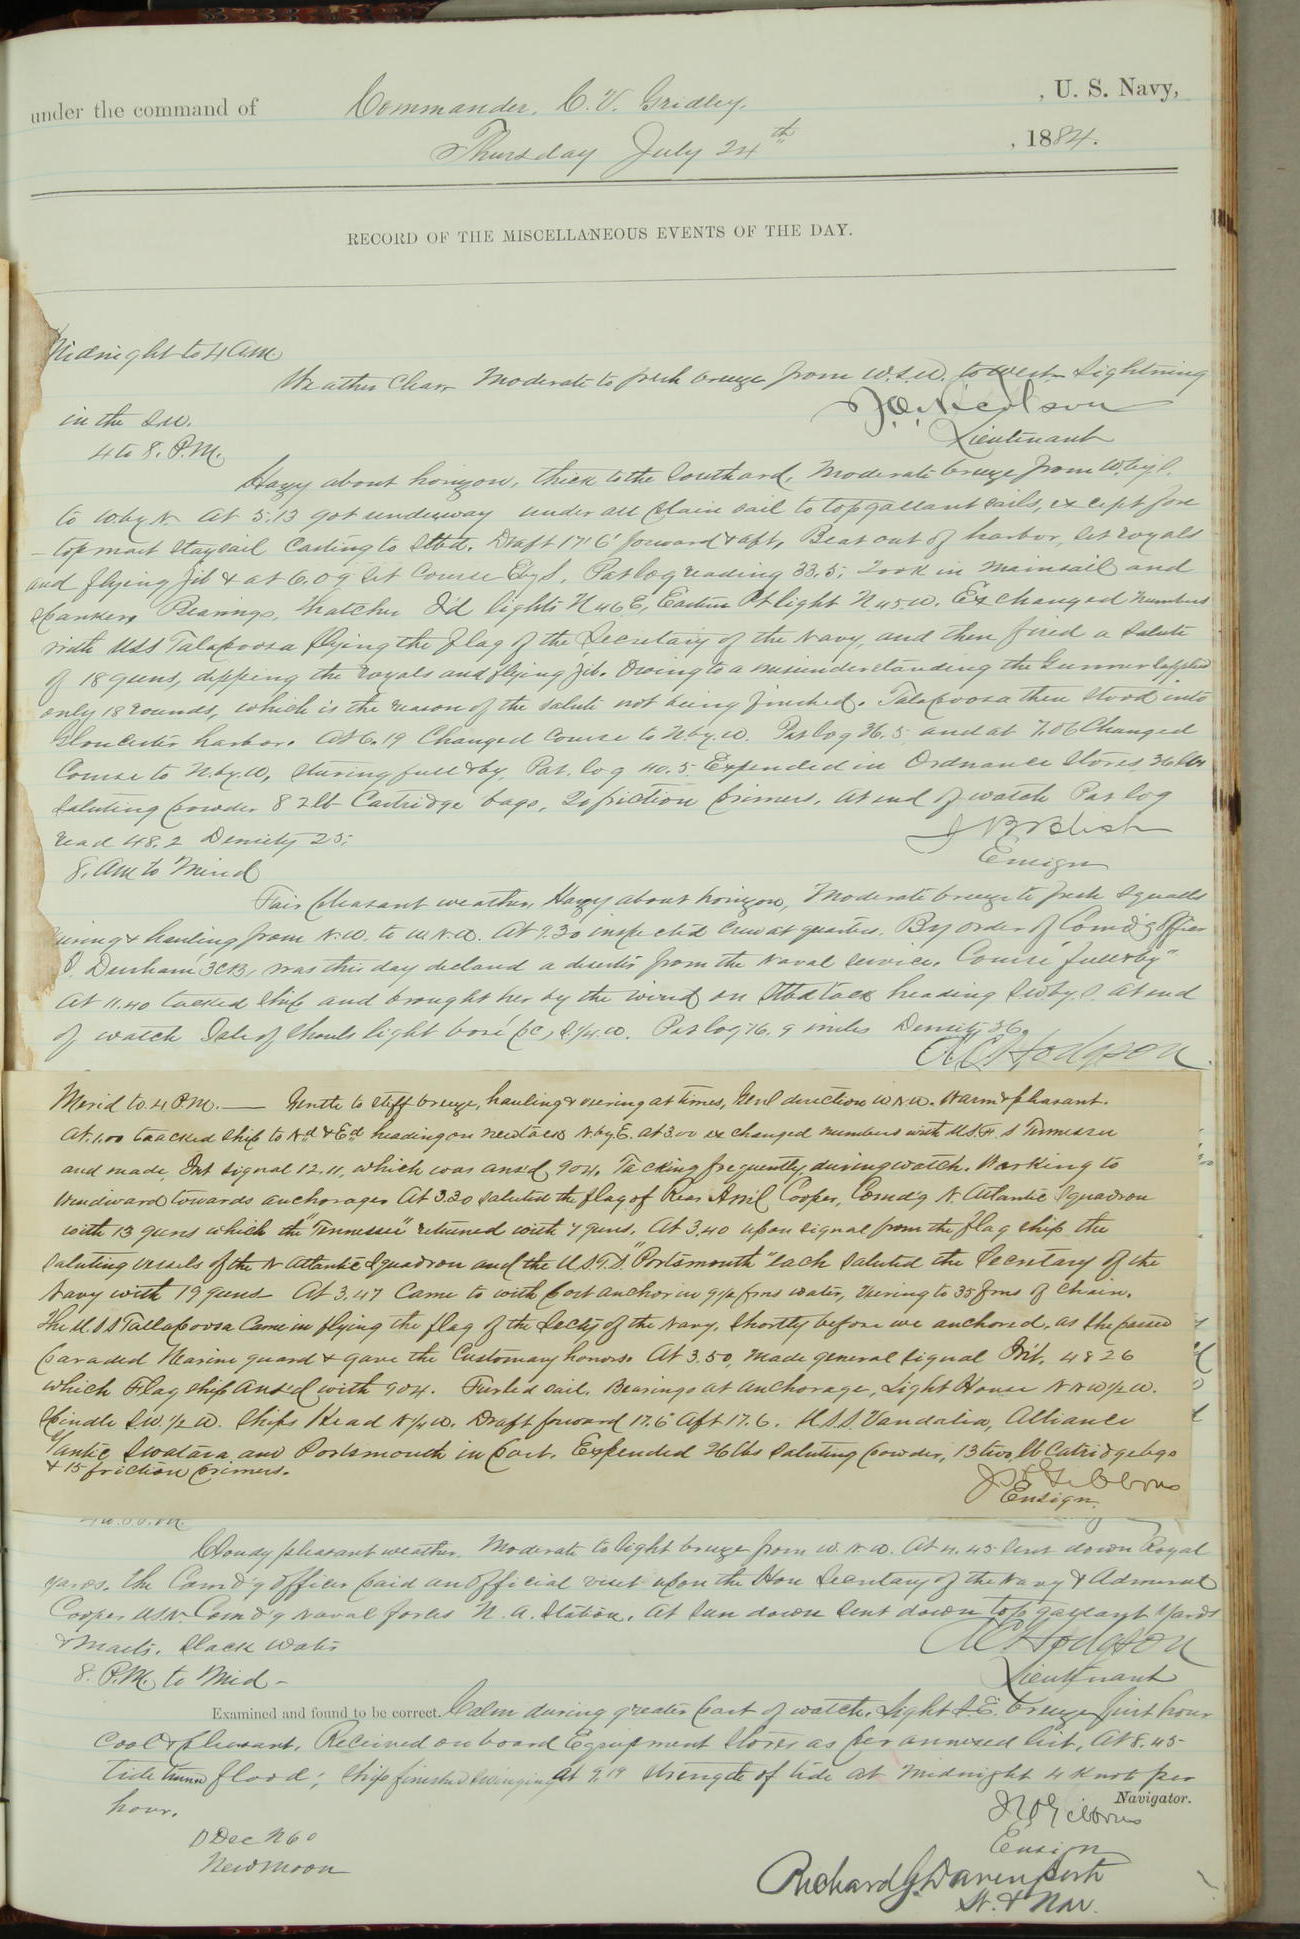 under the command of Commander, C. V. Gridley. , U. S. Navy,
Thursday July 24th , 1884.
RECORD OF THE MISCELLANEOUS EVENTS OF THE DAY.
Midnight to 4 A.M.
Weather Clear, Moderate to fresh breeze from W.S.W. to West. Lightning
in the S.W.
Lieutenant
4 to 8. P.M.
Hazy about horizon, thick to the Southard, Moderate breeze from W.by S.
to W by N. At 5.13 got underway under all plain sail to topgallant sails, except fore
-topmast staysail casting to Stbd. Draft 17' 6" forward & aft, Beat out of harbor, Set royals
and flying jib & at 6.09 Set Course E by S, Pat log reading 33.5; Took in mainsail and
spanker, Bearings, Thatcher I'd lights N 46 E, Eastern Pt light N. 45. W. Exchanged numbers
with USS Talapoosa flying the flag of the Secretary of the Navy, and then fired a Salute
of 18 guns, dipping the royals and flying jib. Owing to a misunderstanding the Gunner supplied
only 18 rounds, which is the reason of the salute not being finished. Talapoosa then stood into
Gloucester harbor. At 6.19 Changed Course to N.by.W. Pat log 36.5 and at 7.06 Changed
Course to N.by.W, Steering full & by, Pat. log 40.5 Expended in Ordnance Stores 36 lbs
Saluting powder 8 2 lb Cartridge bags, 20 friction primers. At end of watch Pat log
read 48.2 Density 25.
J B Blish
Ensign
8. AM to Merid
Fair pleasant weather, Hazy about horizon, Moderate breeze to fresh squalls
veering & hauling from N.W. to W.N.W. At 9.30 inspected crew at quarters. By order of Com'd'g Officer
Denham, was this day declared a deserter from the Naval Service. Course "full & by"
At 11.40 tacked ship and brought her by the wind on Stbd tack heading SW by S. At end
of watch Isle of Shoals light bore (pc) S.1/4.W. Pat log 76.9 miles Density 26.
A C Hodgson
Merid to 4 P.M. — Gentle to stiff breeze, hauling & veering at times, Genl direction W.N.W. Warm & pleasant.
At 1.00 tacked ship to Nd & Ed heading on new tack N.by E. At 3.00 exchanged numbers with U.S.F.S Tennessee
and made, Int signal 12.11, which was ans'd 904. Tacking frequently during watch. Working to
windward towards anchorage. At 3.20 saluted the flag of Rear Am'l Cooper, Comd'g N. Atlantic Squadron
with 13 guns which the "Tennessee" returned with 7 guns. At 3.40 upon signal from the flag ship the
saluting vessels of the N Atlantic Squadron and the U.S.T.S. "Portsmouth" each saluted the Secretary of the
Navy with 19 guns At 3.47 Came to with port anchor in 9 1/2 fms water, veering to 35 fms of chain.
The U.S.S Tallapoosa Came in flying the flag of the Sec'ty of the Navy, shortly before we anchored, as she passed
paraded Marine guard & gave the customary honors. At 3.50, made general signal Brit. 4826
which Flag ship ans'd with 904. Furled sail. Bearings at anchorage, Light House N N W 1/2 W.
Spindle S.W. 1/2 W. Ships Head N 1/4 W. Draft forward 17.6 Aft 17.6. U.S.S. Vandalia, Alliance
Yantic Swatara and Portsmouth in port. Expended 26 lbs Saluting powder, 13 two lb Catridge bgs
& 15 friction primers.
Ensign.
Cloudy pleasant weather. Moderate to light breeze from W. N. W. At 4.45 Sent down Royal
yards. The Comd'g Officer paid an Official visit upon the Hon Secretary of the Navy & Admiral
Cooper USN Comd'g Naval forces N. A. Station. At Sun down Sent down top gallant Yards
& Masts. Slack Water
A C Hodgson
Lieutenant
8. P.M. to Mid -
Examined and found to be correct. Calm during greater part of watch, Light S.E. breeze first hour
Cool & pleasant. Received on board Equipment Stores as per annexed list. At 8.45
tide turned flood; ship finished swinging at 9.19 Strength of tide at Midnight 4 Knots per
hour.
Navigator.
Ensign
D Dec N 6°
New moon
Richard G. Davenport
Lt. & Nav.